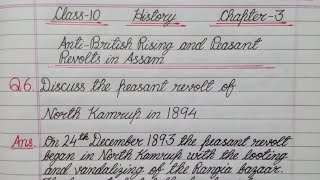 Class-10 History Chapter-3
Anti-British Rising and Peasant
Revolts in Assam
Q6. Discuss the peasant revolt of
North Kamrup in 1894.
Ans. On 24th December 1893 the peasant revolt
began in North Kamrup with the looting
and vandalizing of the Rangia bazaar.